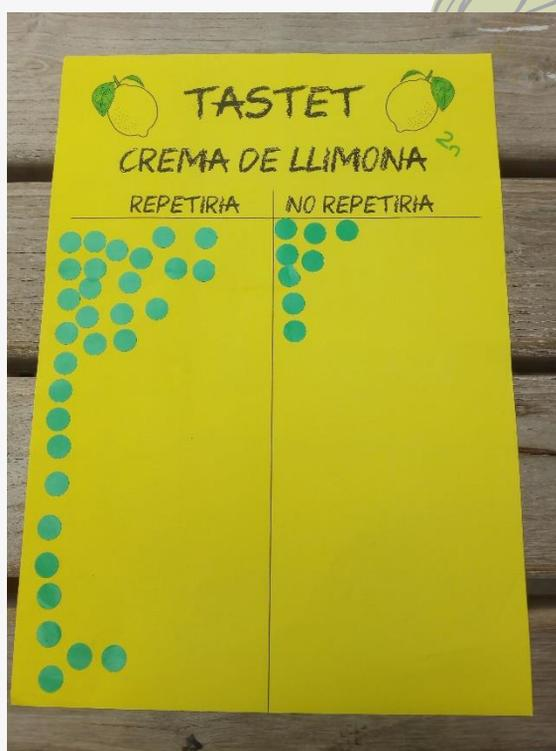 TASTET
CREMA DE LLIMONA
REPETIRIA NO REPETIRIA